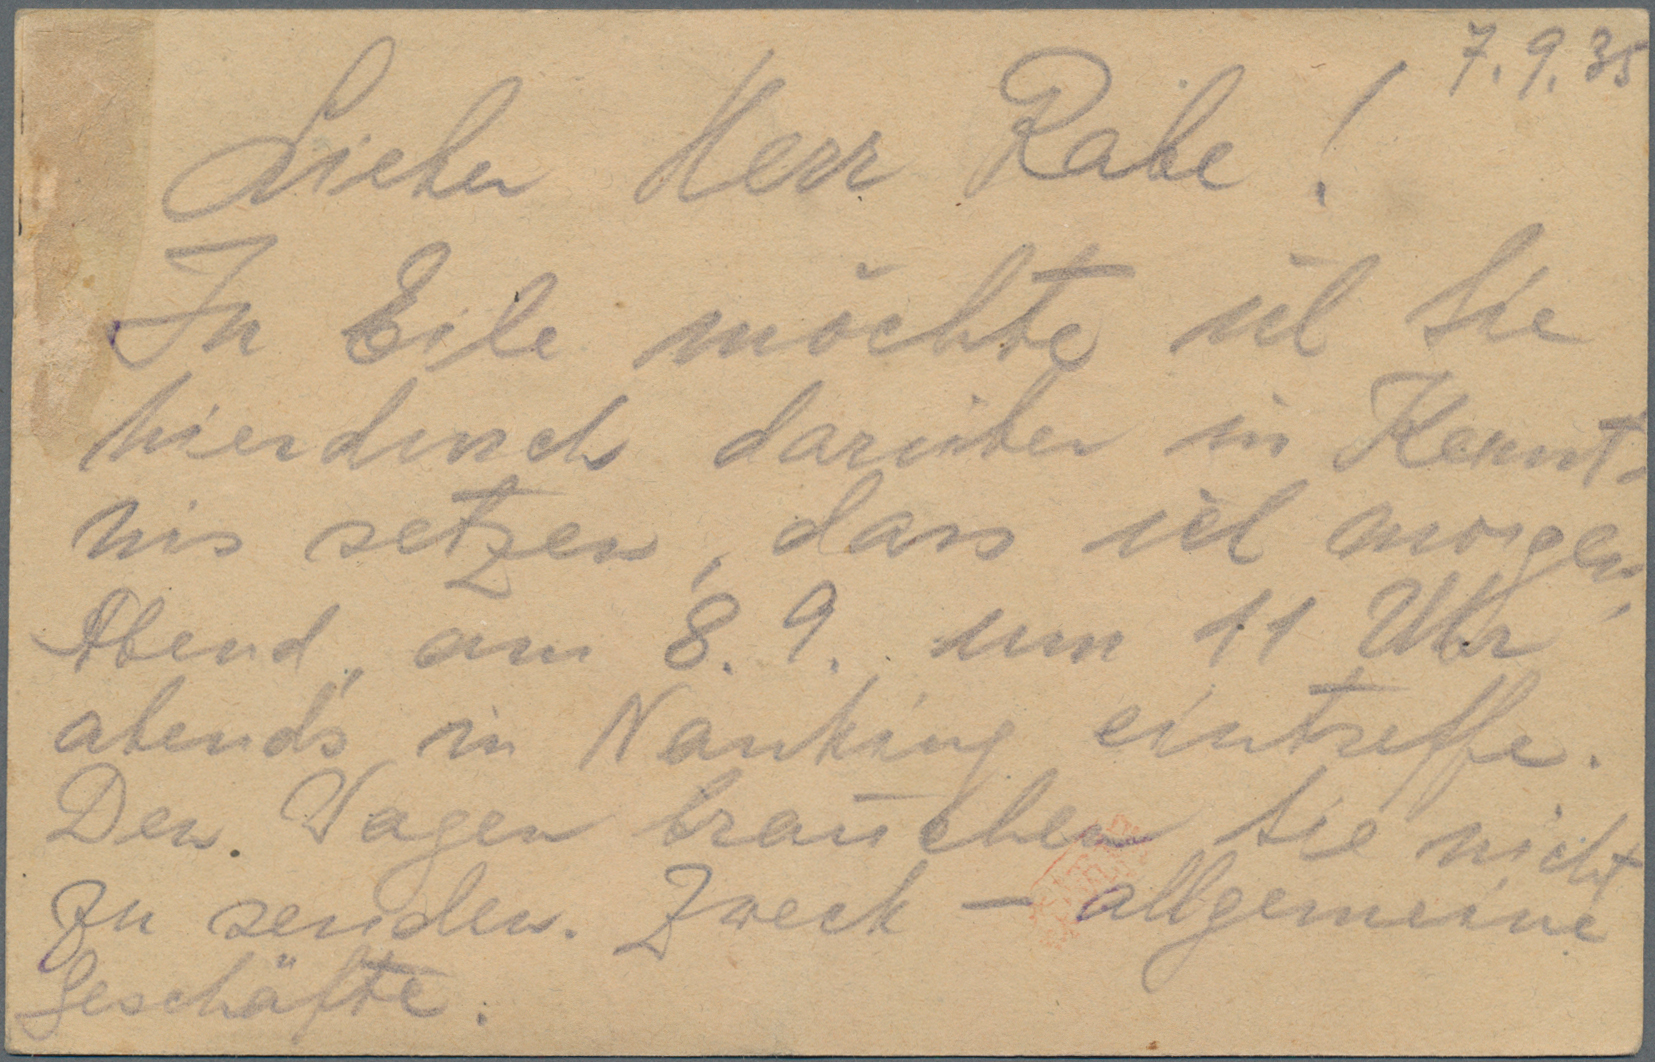 7.9.35
Lieber Herr Rabe!
In Eile möchte ich Sie
hierdurch darüber in Kennt-
nis setzen, dass ich morgen
Abend, am 8.9. um 11 Uhr
abends in Nanking eintreffe.
Den Wagen brauchen Sie nicht
zu senden. Zweck – allgemeine
Geschäfte.